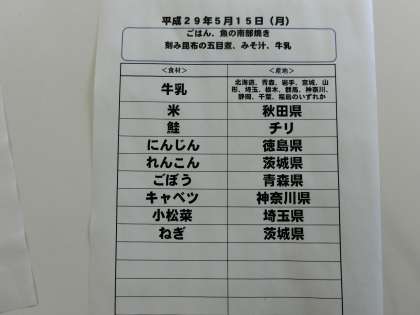 平成29年5月15日(月)
ごはん、魚の南部焼き
刻み昆布の五目煮、みそ汁、牛乳
<食材> <産地>
牛乳 北海道、青森、岩手、宮城、山
形、埼玉、栃木、群馬、神奈川、
静岡、千葉、福島のいずれか
米 秋田県
鮭 チリ
にんじん 徳島県
れんこん 茨城県
ごぼう 青森県
キャベツ 神奈川県
小松菜 埼玉県
ねぎ 茨城県